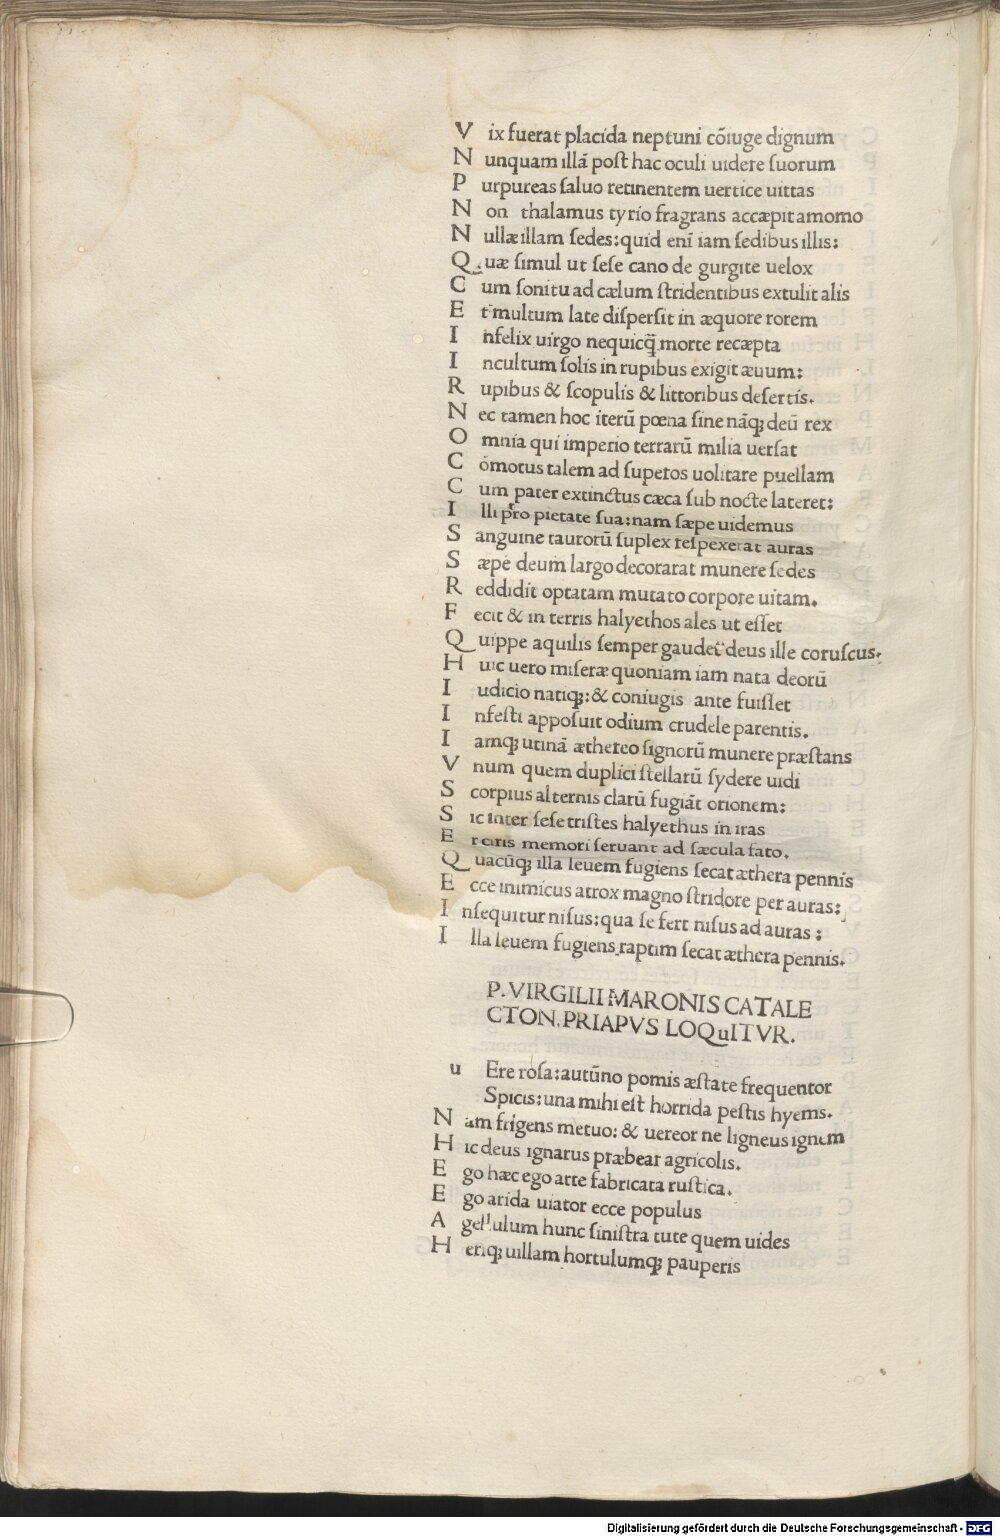 V ix fuerat placida neptuni cōiuge dignum
N unquam illā post hac oculi uidere suorum
P urpureas saluo retinentem uertice uittas
N on thalamus tyrio fragrans accæpit amomo
N ullæ illam sedes: quid eni̅ iam sedibus illis:
Q uæ simul ut sese cano de gurgite uelox
C um sonitu ad cælum stridentibus extulit alis
E t multum late dispersit in æquore rorem
I nfelix uirgo nequicq̄ morte recæpta
I ncultum solis in rupibus exigit æuum:
R upibus & scopulis & littoribus desertis.
N ec tamen hoc iterū pœna sine nāq; deū rex
O mnia qui imperio terrarū milia uersat
C ōmotus talem ad superos uolitare puellam
C um pater extinctus cæca sub nocte lateret:
I lli pro pietate sua: nam sæpe uidemus
S anguine taurorū suplex respexerat auras
S æpe deum largo decorarat munere sedes
R eddidit optatam mutato corpore uitam.
F ecit & in terris halyethos ales ut esset
Q uippe aquilis semper gaudet deus ille coruscus.
H uic uero miseræ quoniam iam nata deorū
I udicio natiq;: & coniugis ante fuisset
I nfesti apposuit odium crudele parentis.
I amq; utinā æthereo signorū munere præstans
V num quem duplici stellarū sydere uidi
S corpius alternis clarū fugiāt orionem:
S ic inter sese tristes halyethus in iras
E t ciris memori seruant ad sæcula fato.
Q uacūq; illa leuem fugiens secat æthera pennis
E cce inimicus atrox magno stridore per auras:
I nsequitur nisus: qua se fert nisus ad auras:
I lla leuem fugiens raptim secat æthera pennis.
P. VIRGILII MARONIS CATALE
CTON. PRIAPVS LOQuITVR.
u Ere rosa: autūno pomis æstate frequentor
Spicis: una mihi est horrida pestis hyems.
N am frigens metuo: & uereor ne ligneus ignem
H ic deus ignarus præbear agricolis.
E go hæc ego arte fabricata rustica.
E go arida uiator ecce populus
A gellulum hunc sinistra tute quem uides
H eriq; uillam hortulumq; pauperis
Digitalisierung gefördert durch die Deutsche Forschungsgemeinschaft - DFG